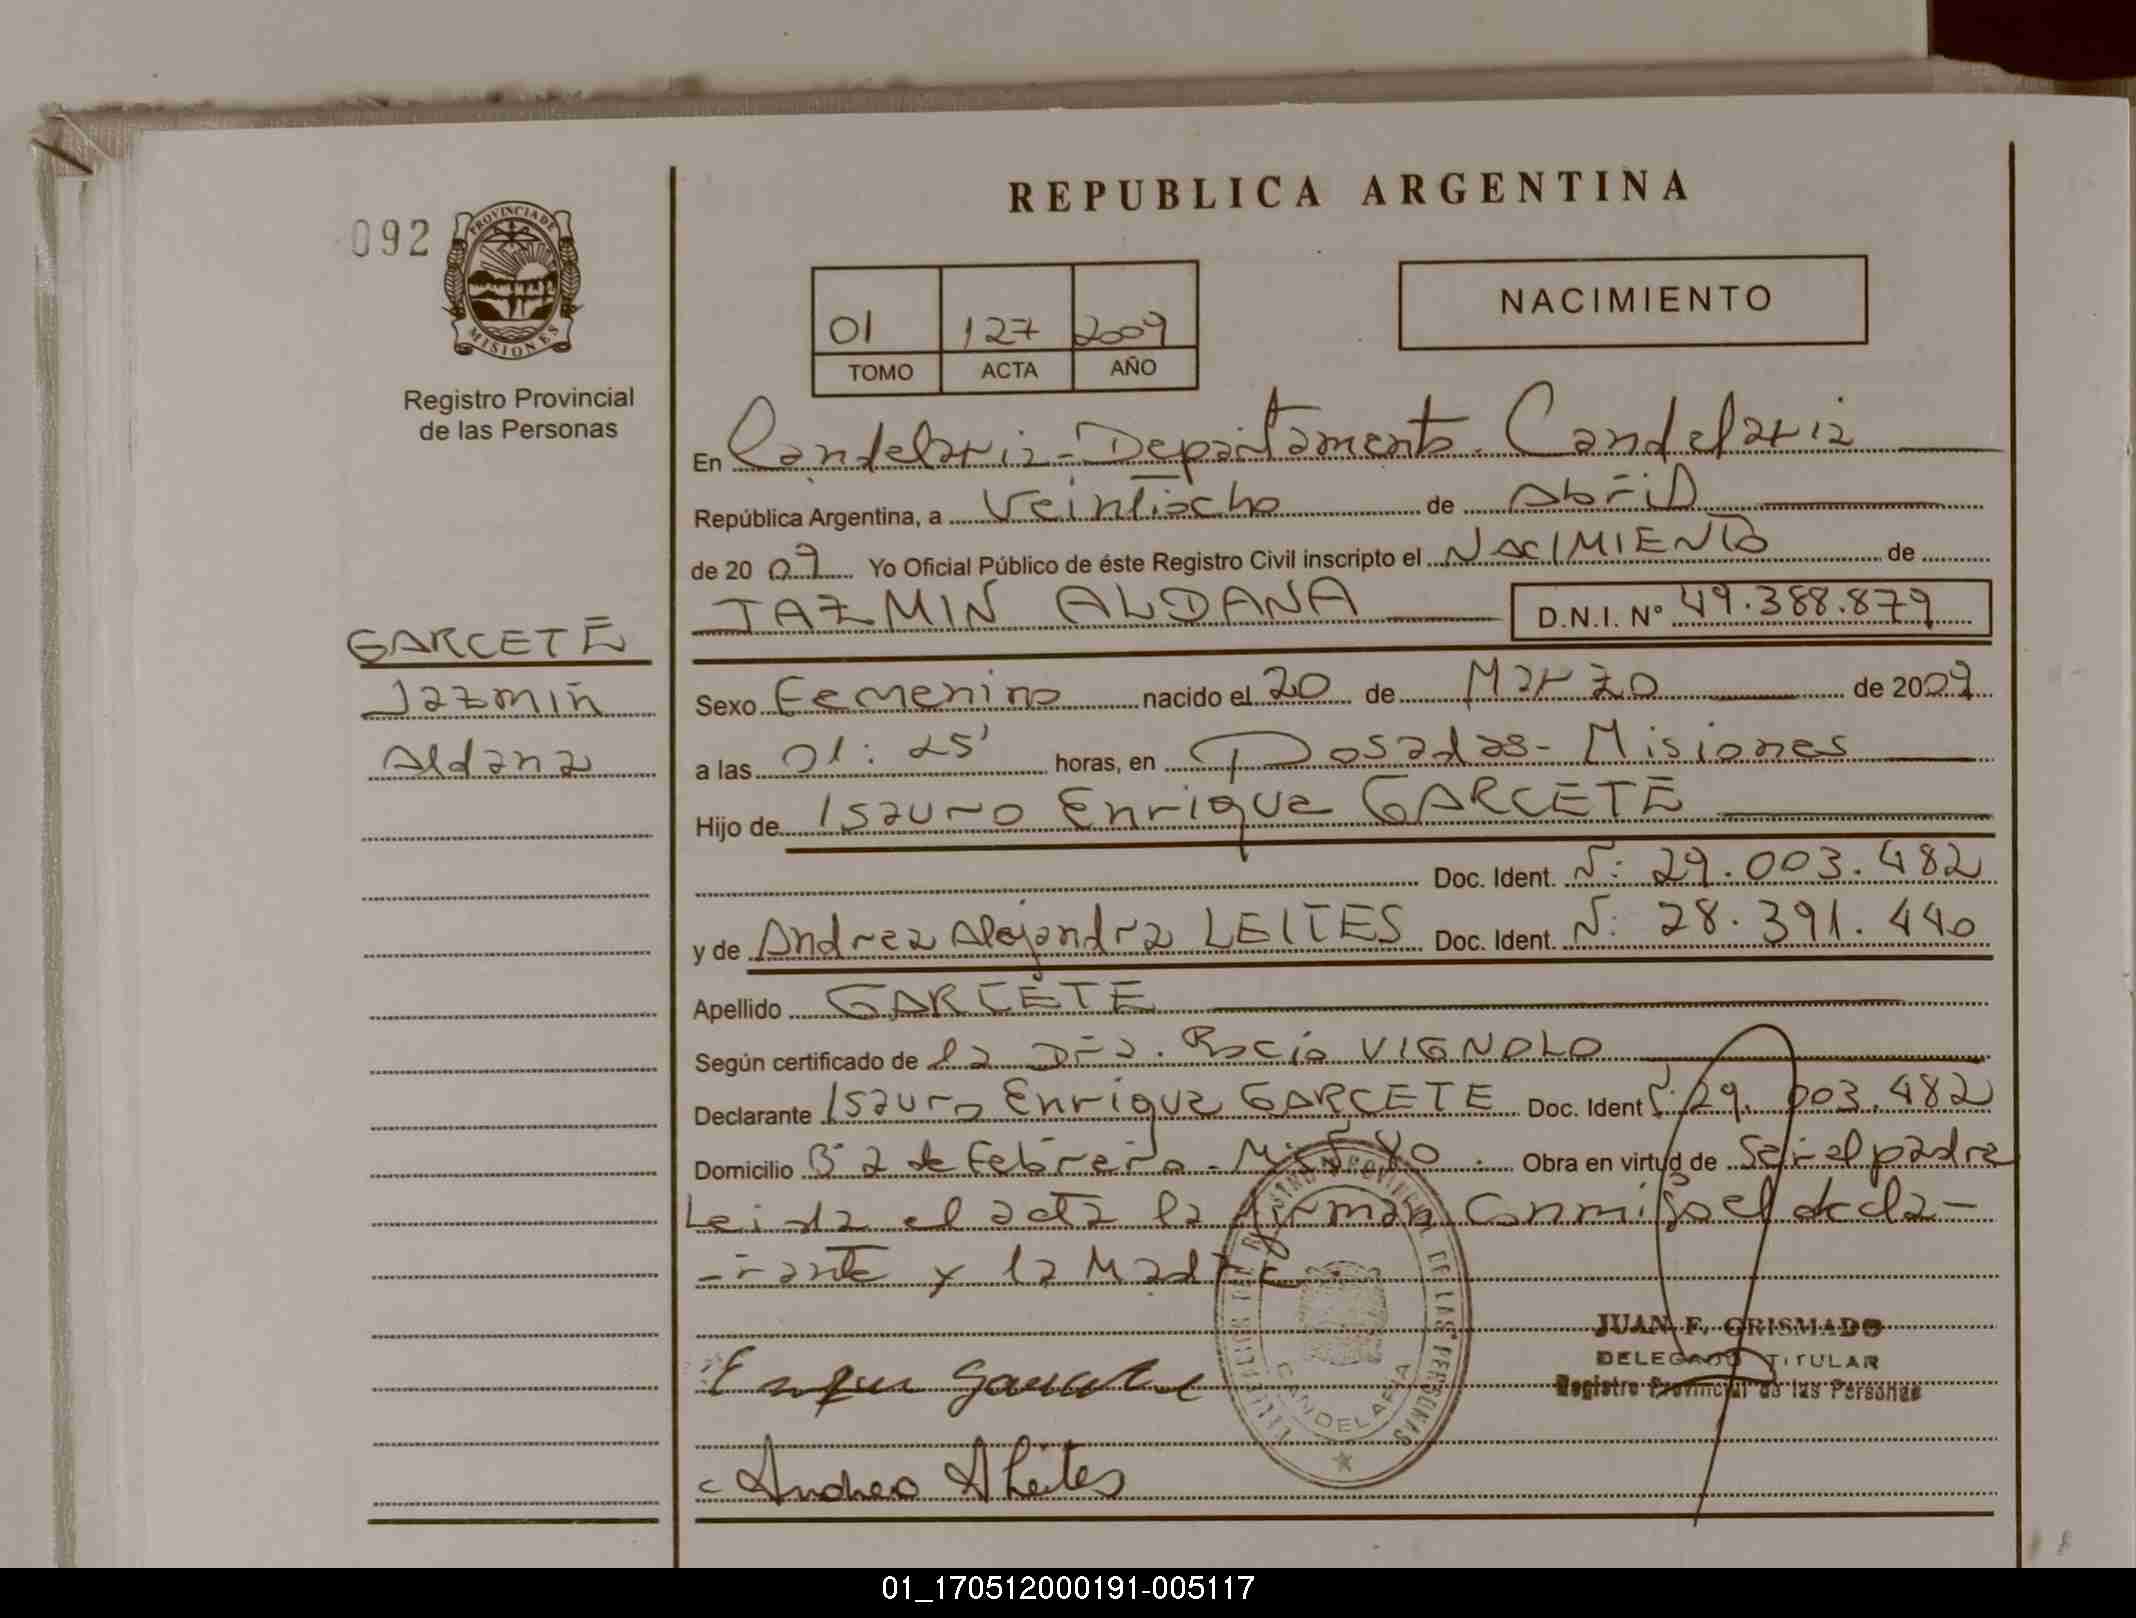 REPUBLICA ARGENTINA
092
PROVINCIA DE
MISIONES
Registro Provincial
de las Personas
01 127 2009
TOMO ACTA AÑO
NACIMIENTO
En Candelaria - Departamento Candelaria
República Argentina, a Veintiocho de Abril
de 20 09 Yo Oficial Público de éste Registro Civil inscripto el NACIMIENTO de
JAZMIN ALDANA D.N.I. Nº 49.388.879
GARCETE
Jazmin
Aldana
Sexo Femenino nacido el 20 de Marzo de 2009
a las 01:25' horas, en Posadas - Misiones
Hijo de Isauro Enrique GARCETE
Doc. Ident. N: 29.003.482
y de Andrea Alejandra LEITES Doc. Ident. N: 28.391.440
Apellido GARCETE
Según certificado de la Dra. Rocío VIGNOLO
Declarante Isauro Enrique GARCETE Doc. Ident N: 29.003.482
Domicilio Bº 2 de Febrero - Obra en virtud de Ser el padre
Leida el acta la firman conmigo el decla-
-rante y la Madre
REGISTRO PROVINCIAL DE LAS PERSONAS
CANDELARIA
JUAN F. GRISMADO
DELEGADO TITULAR
Registro Provincial de las Personas
Andrea A Leites
01_170512000191-005117